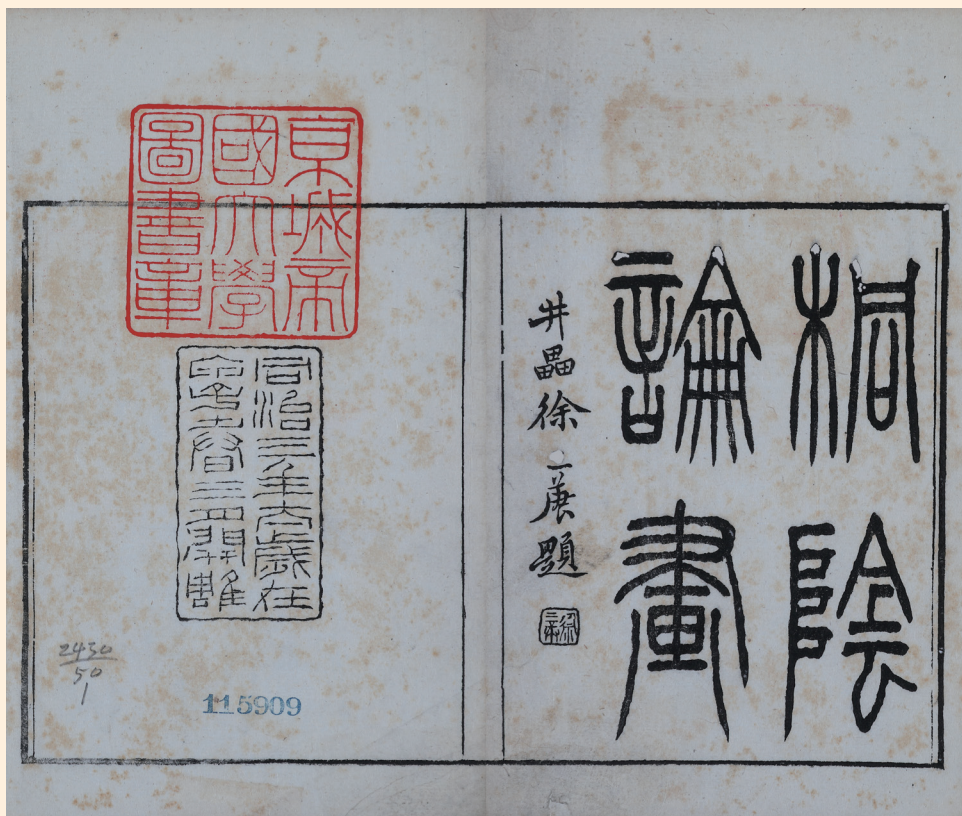 桐陰
論畫
井畾徐三庚題
京城帝
國大學
圖書章
同治三年太歲在
開雕
2430
50
1
115909